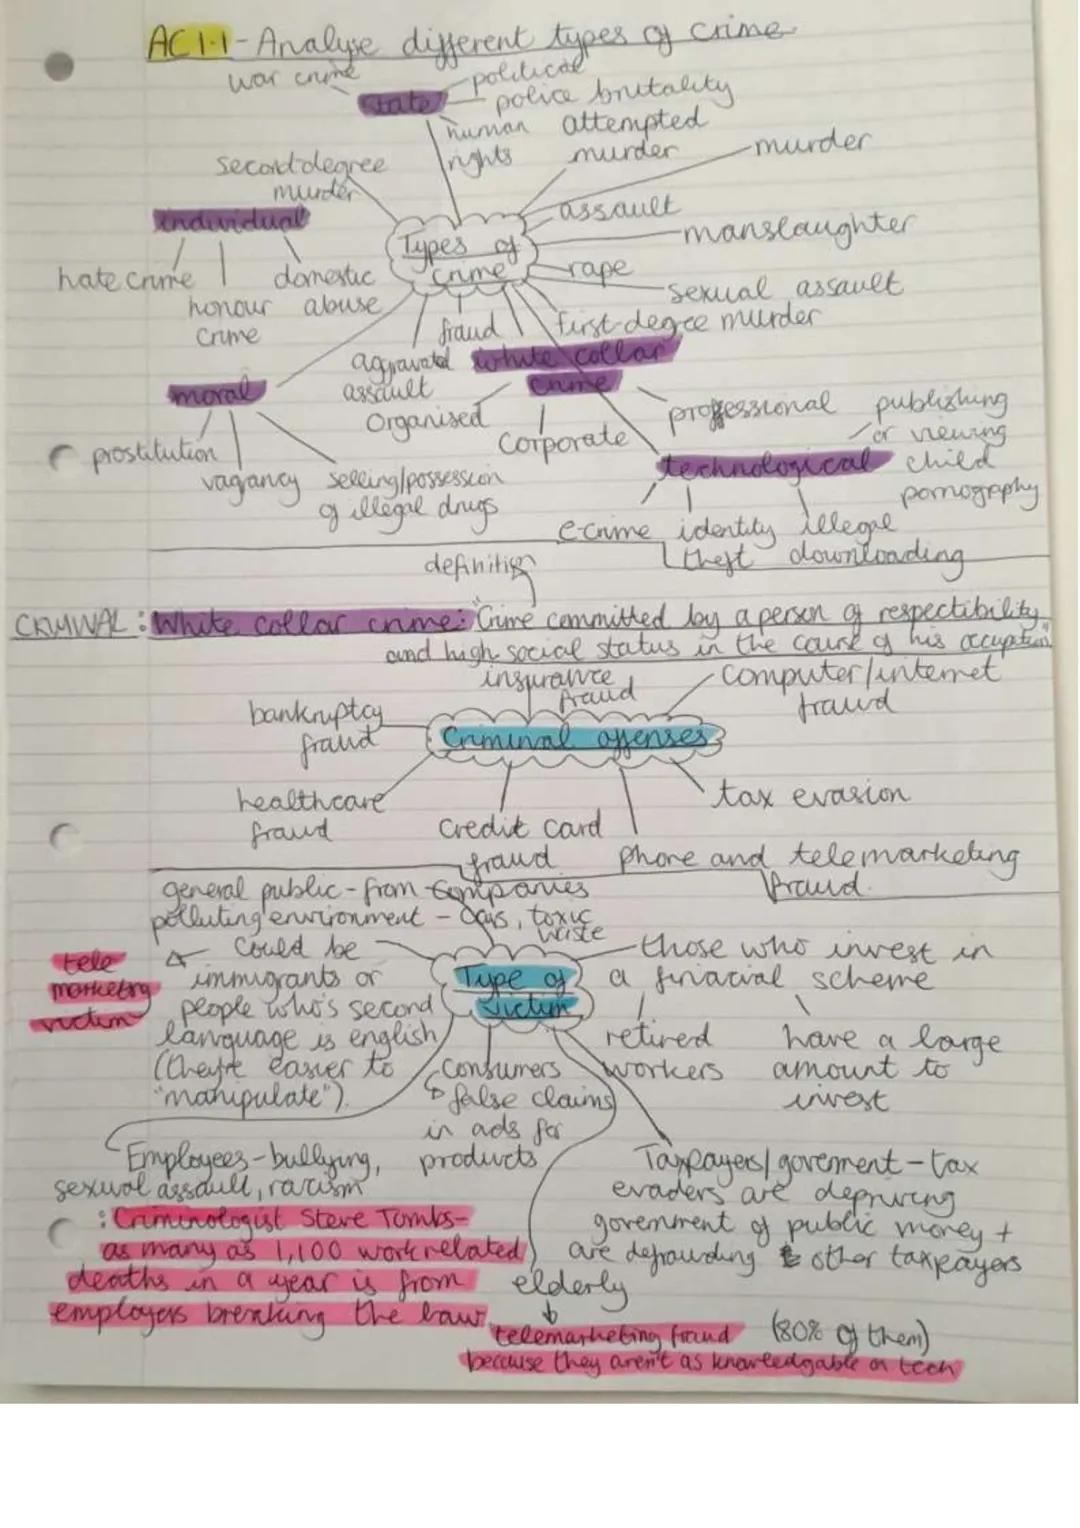 AC 1.1 - Analyse different types of crime
war crime
political
state
police brutality
human rights
attempted murder
murder
second-degree murder
individual
assault
manslaughter
Types of crime
rape
hate crime
honour crime
domestic abuse
sexual assault
first-degree murder
fraud
aggravated assault
white collar crime
moral
Organised
Corporate
professional
publishing or viewing child pornography
prostitution
vagancy
selling/possession of illegal drugs
technological
e-crime
identity theft
illegal downloading
definition
CRIMINAL: White collar crime: "Crime committed by a person of respectibility
and high social status in the course of his occuption"
insurance fraud
computer/internet fraud
bankruptcy fraud
Criminal offenses
healthcare fraud
credit card fraud
tax evasion
phone and telemarketing fraud.
general public - from companies
polluting environment - gas, toxic waste
tele marketing victim
could be
immigrants or
people who's second
language is english
(they're easier to
"manipulate").
Type of victim
those who invest in
a finacial scheme
retired workers
have a large
amount to
invest
Consumers
false claims
in ads for
products
Employees - bullying,
sexual assault, racism
: Criminologist Steve Tombs -
as many as 1,100 work related
deaths in a year is from
employers breaking the law.
Taxpayers/goverment - tax
evaders are depriving
goverment of public money +
are defrauding other taxpayers
elderly
telemarketing fraud (80% of them)
because they aren't as knowledgable on tech